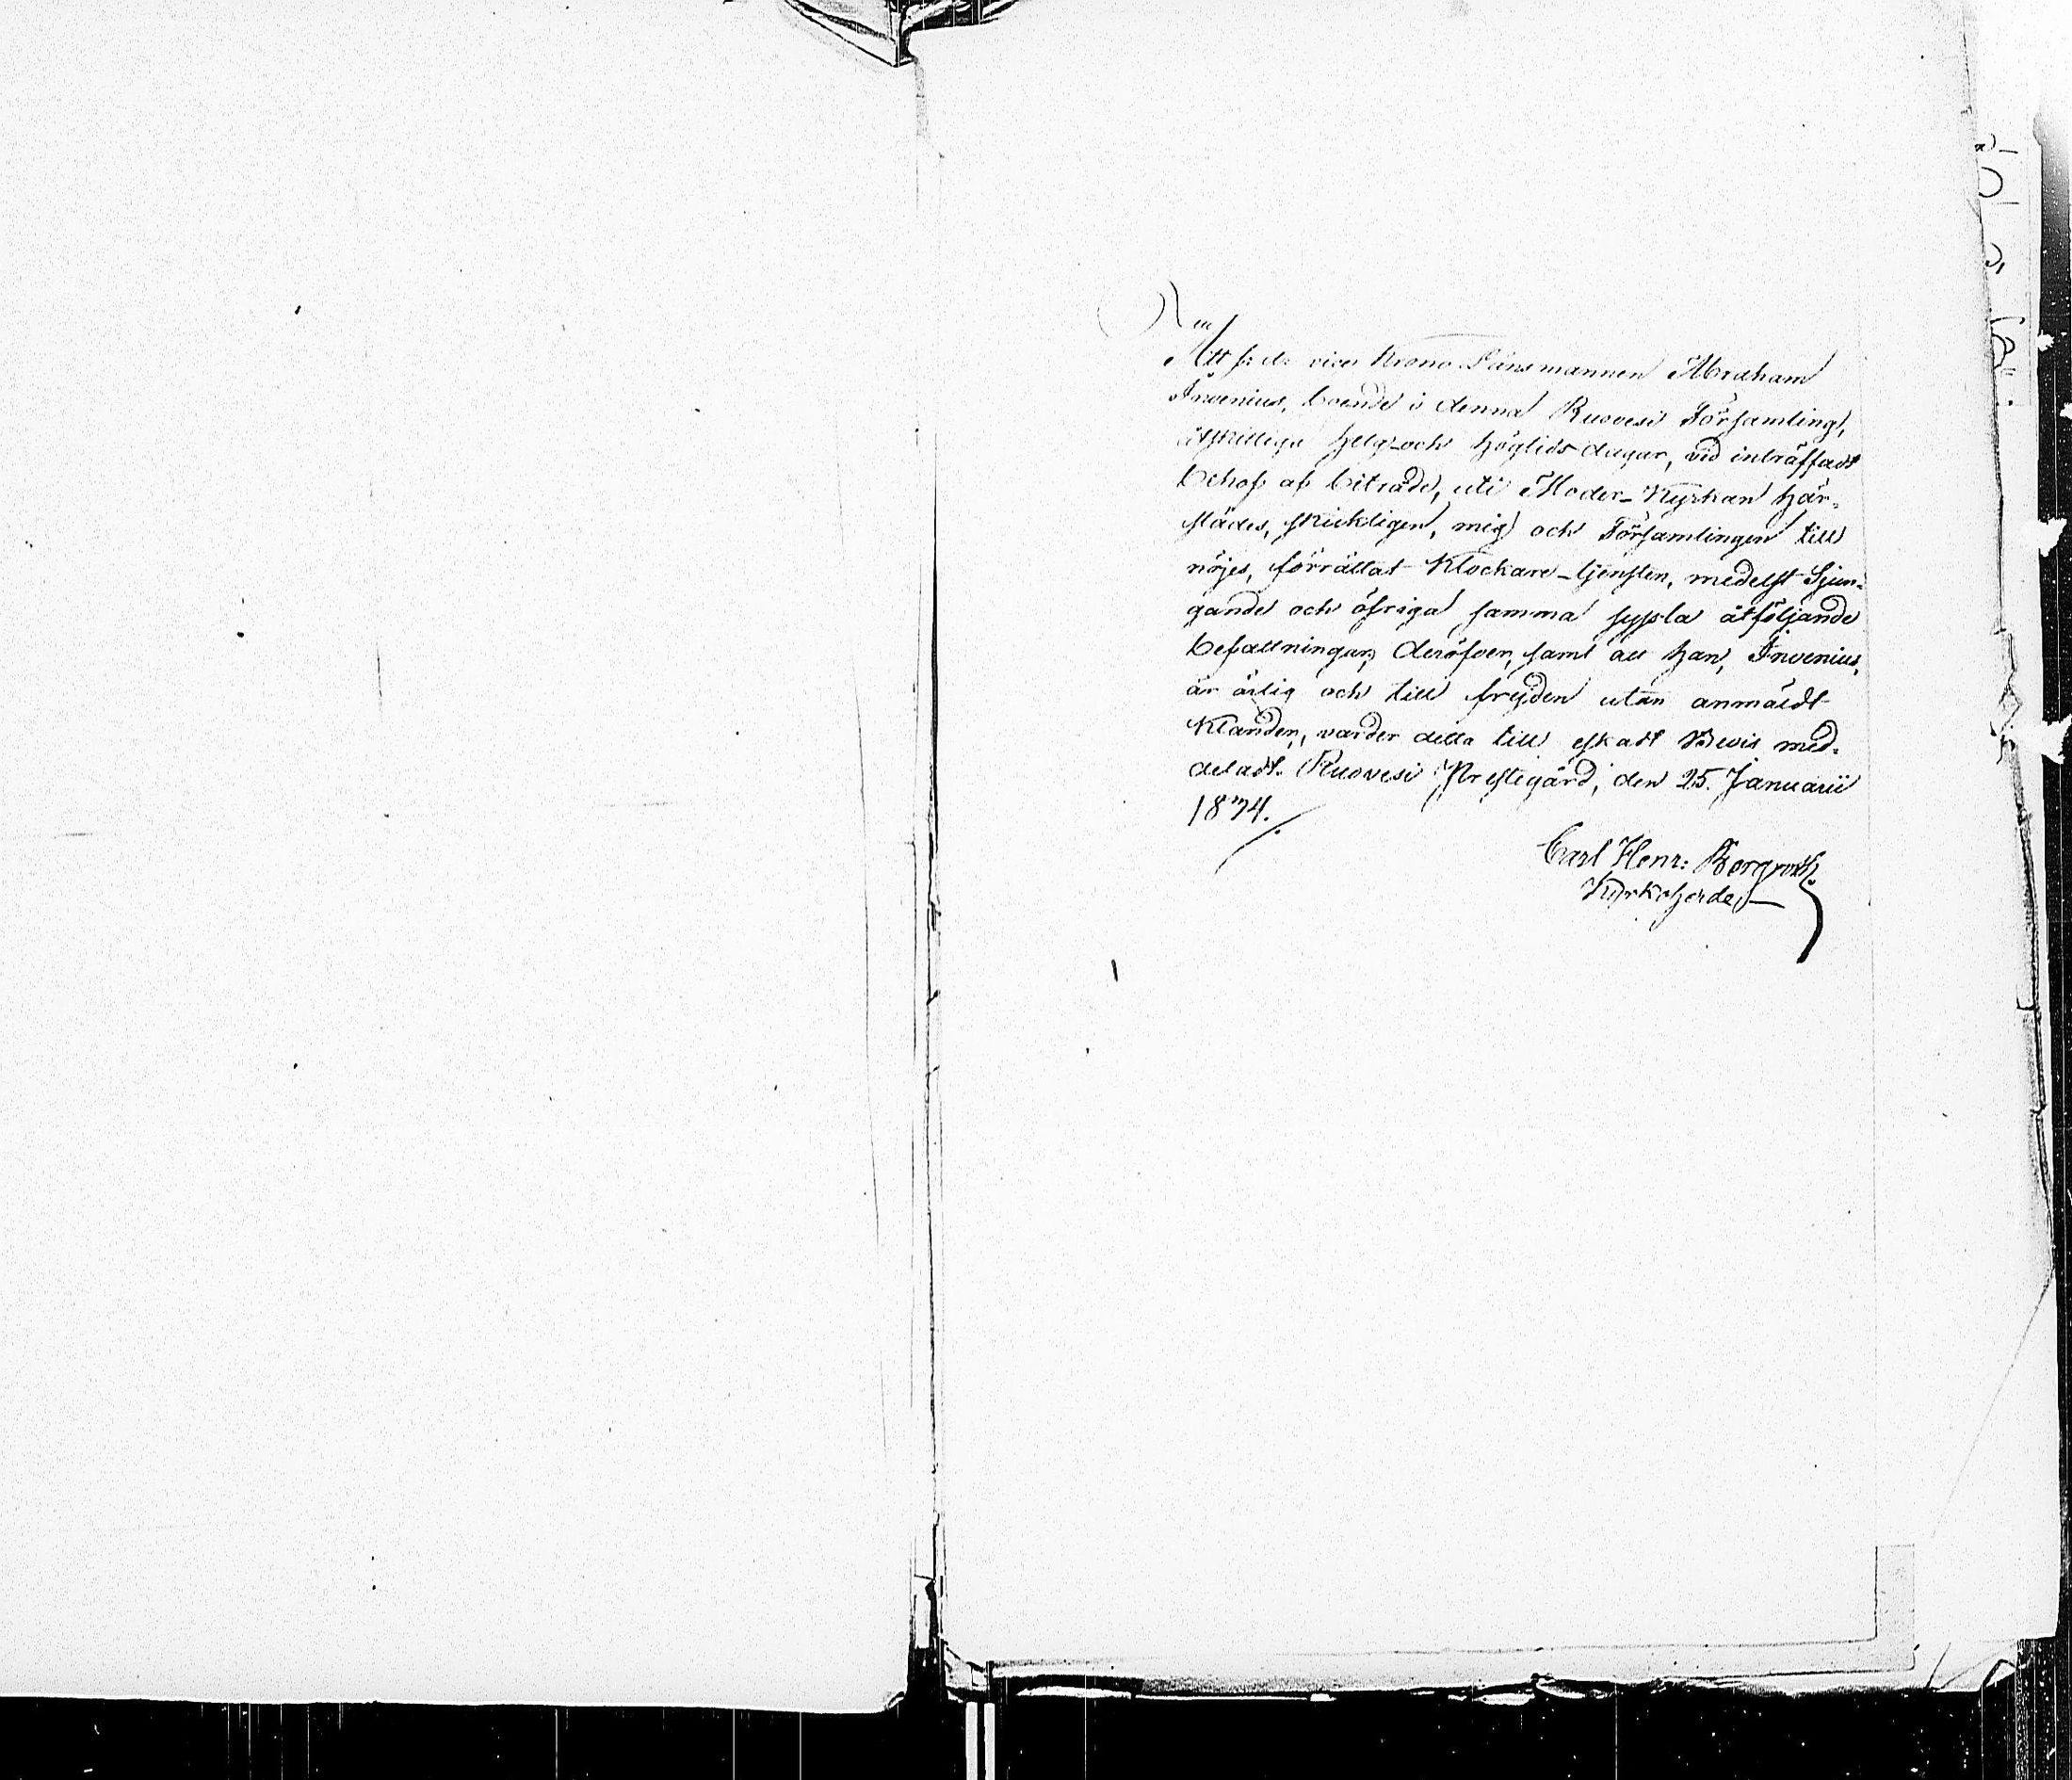 Att f: d: vice Krono Länsmannen Abraham
Invenius, boende i denna Ruovesi Församling,
åtskilliga helg- och högtids dagar, vid inträffadt
behof af biträde, uti Moder-Kyrkan här-
städes, skickligen, mig och Församlingen till
nöjes, förrättat Klockare-tjensten, medelst Sjun-
gande och öfriga samma syssla åtföljande
befattningar, deröfver, samt att han, Invenius,
är ärlig och till frejden utan anmäldt
klander, varder detta till äskadt Bevis med-
deladt. Ruovesi Prestegård, den 25. Januarii
1874.
Carl Henr: Bergroth.
Kyrkoherde